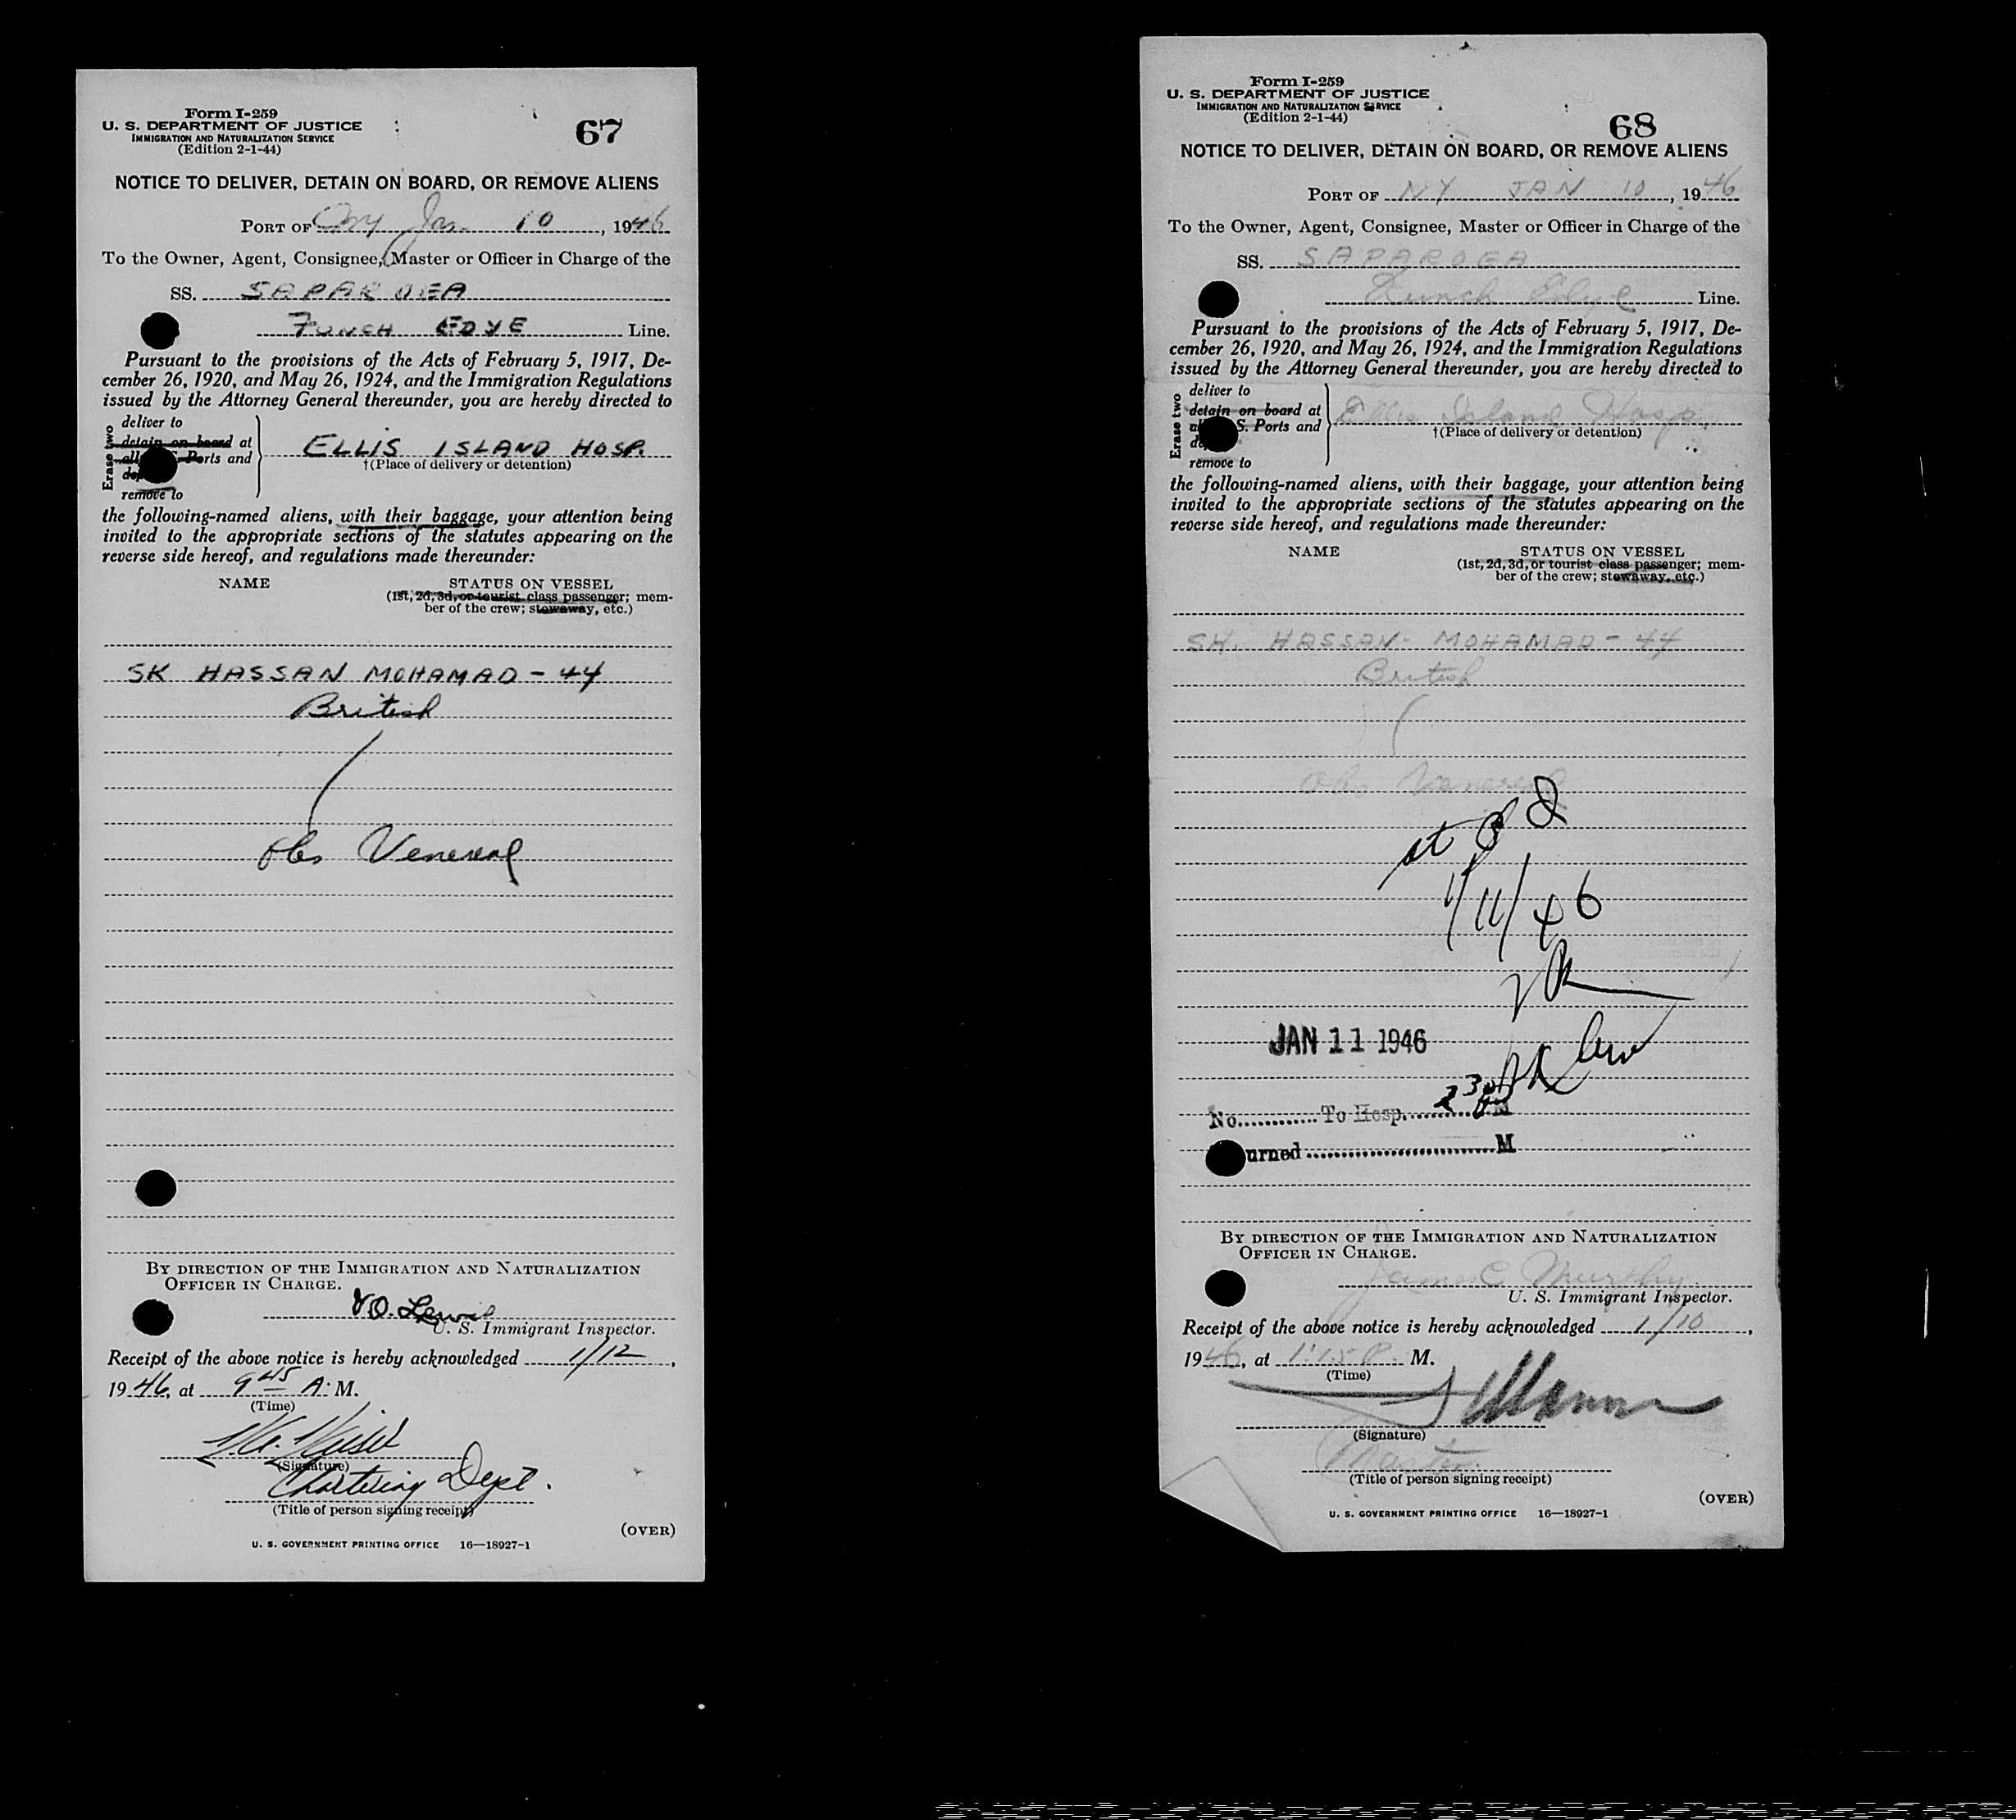 Form I-259
U. S. DEPARTMENT OF JUSTICE
IMMIGRATION AND NATURALIZATION SERVICE
(Edition 2-1-44)
67
NOTICE TO DELIVER, DETAIN ON BOARD, OR REMOVE ALIENS
PORT OF NY Jan 10, 1946
To the Owner, Agent, Consignee, Master or Officer in Charge of the
SS. SAPAROEA
FUNCH EDYE Line.
Pursuant to the provisions of the Acts of February 5, 1917, De-
cember 26, 1920, and May 26, 1924, and the Immigration Regulations
issued by the Attorney General thereunder, you are hereby directed to
Erase two
deliver to
detain on board at
all U.S. Ports and
remove to
ELLIS ISLAND HOSP.
†(Place of delivery or detention)
the following-named aliens, with their baggage, your attention being
invited to the appropriate sections of the statutes appearing on the
reverse side hereof, and regulations made thereunder:
NAME STATUS ON VESSEL
(1st, 2d, 3d, or tourist class passenger; mem-
ber of the crew; stowaway, etc.)
SK HASSAN MOHAMAD - 44
British
Obs Venereal
BY DIRECTION OF THE IMMIGRATION AND NATURALIZATION
OFFICER IN CHARGE.
Lewis
U. S. Immigrant Inspector.
Receipt of the above notice is hereby acknowledged 1/12,
1946, at 9 45 A. M.
(Time)
(Signature)
Chartering Dept.
(Title of person signing receipt)
(OVER)
U. S. GOVERNMENT PRINTING OFFICE 16—18927-1
Form I-259
U. S. DEPARTMENT OF JUSTICE
IMMIGRATION AND NATURALIZATION SERVICE
(Edition 2-1-44)
68
NOTICE TO DELIVER, DETAIN ON BOARD, OR REMOVE ALIENS
PORT OF NY JAN 10, 1946
To the Owner, Agent, Consignee, Master or Officer in Charge of the
SS. SAPAROEA
Funch Edye Line.
Pursuant to the provisions of the Acts of February 5, 1917, De-
cember 26, 1920, and May 26, 1924, and the Immigration Regulations
issued by the Attorney General thereunder, you are hereby directed to
Erase two
deliver to
detain on board at
S. Ports and
remove to
Ellis Island Hosp.
†(Place of delivery or detention)
the following-named aliens, with their baggage, your attention being
invited to the appropriate sections of the statutes appearing on the
reverse side hereof, and regulations made thereunder:
NAME STATUS ON VESSEL
(1st, 2d, 3d, or tourist class passenger; mem-
ber of the crew; stowaway, etc.)
SK. HASSAN - MOHAMAD - 44
British
Obs Venereal
1/11/46
JAN 11 1946
No. To Hosp. 2 30 M
urned M
BY DIRECTION OF THE IMMIGRATION AND NATURALIZATION
OFFICER IN CHARGE.
James C Murphy
U. S. Immigrant Inspector.
Receipt of the above notice is hereby acknowledged 1/10,
1946, at 1:15 P. M.
(Time)
(Signature)
Master
(Title of person signing receipt)
(OVER)
U. S. GOVERNMENT PRINTING OFFICE 16—18927-1